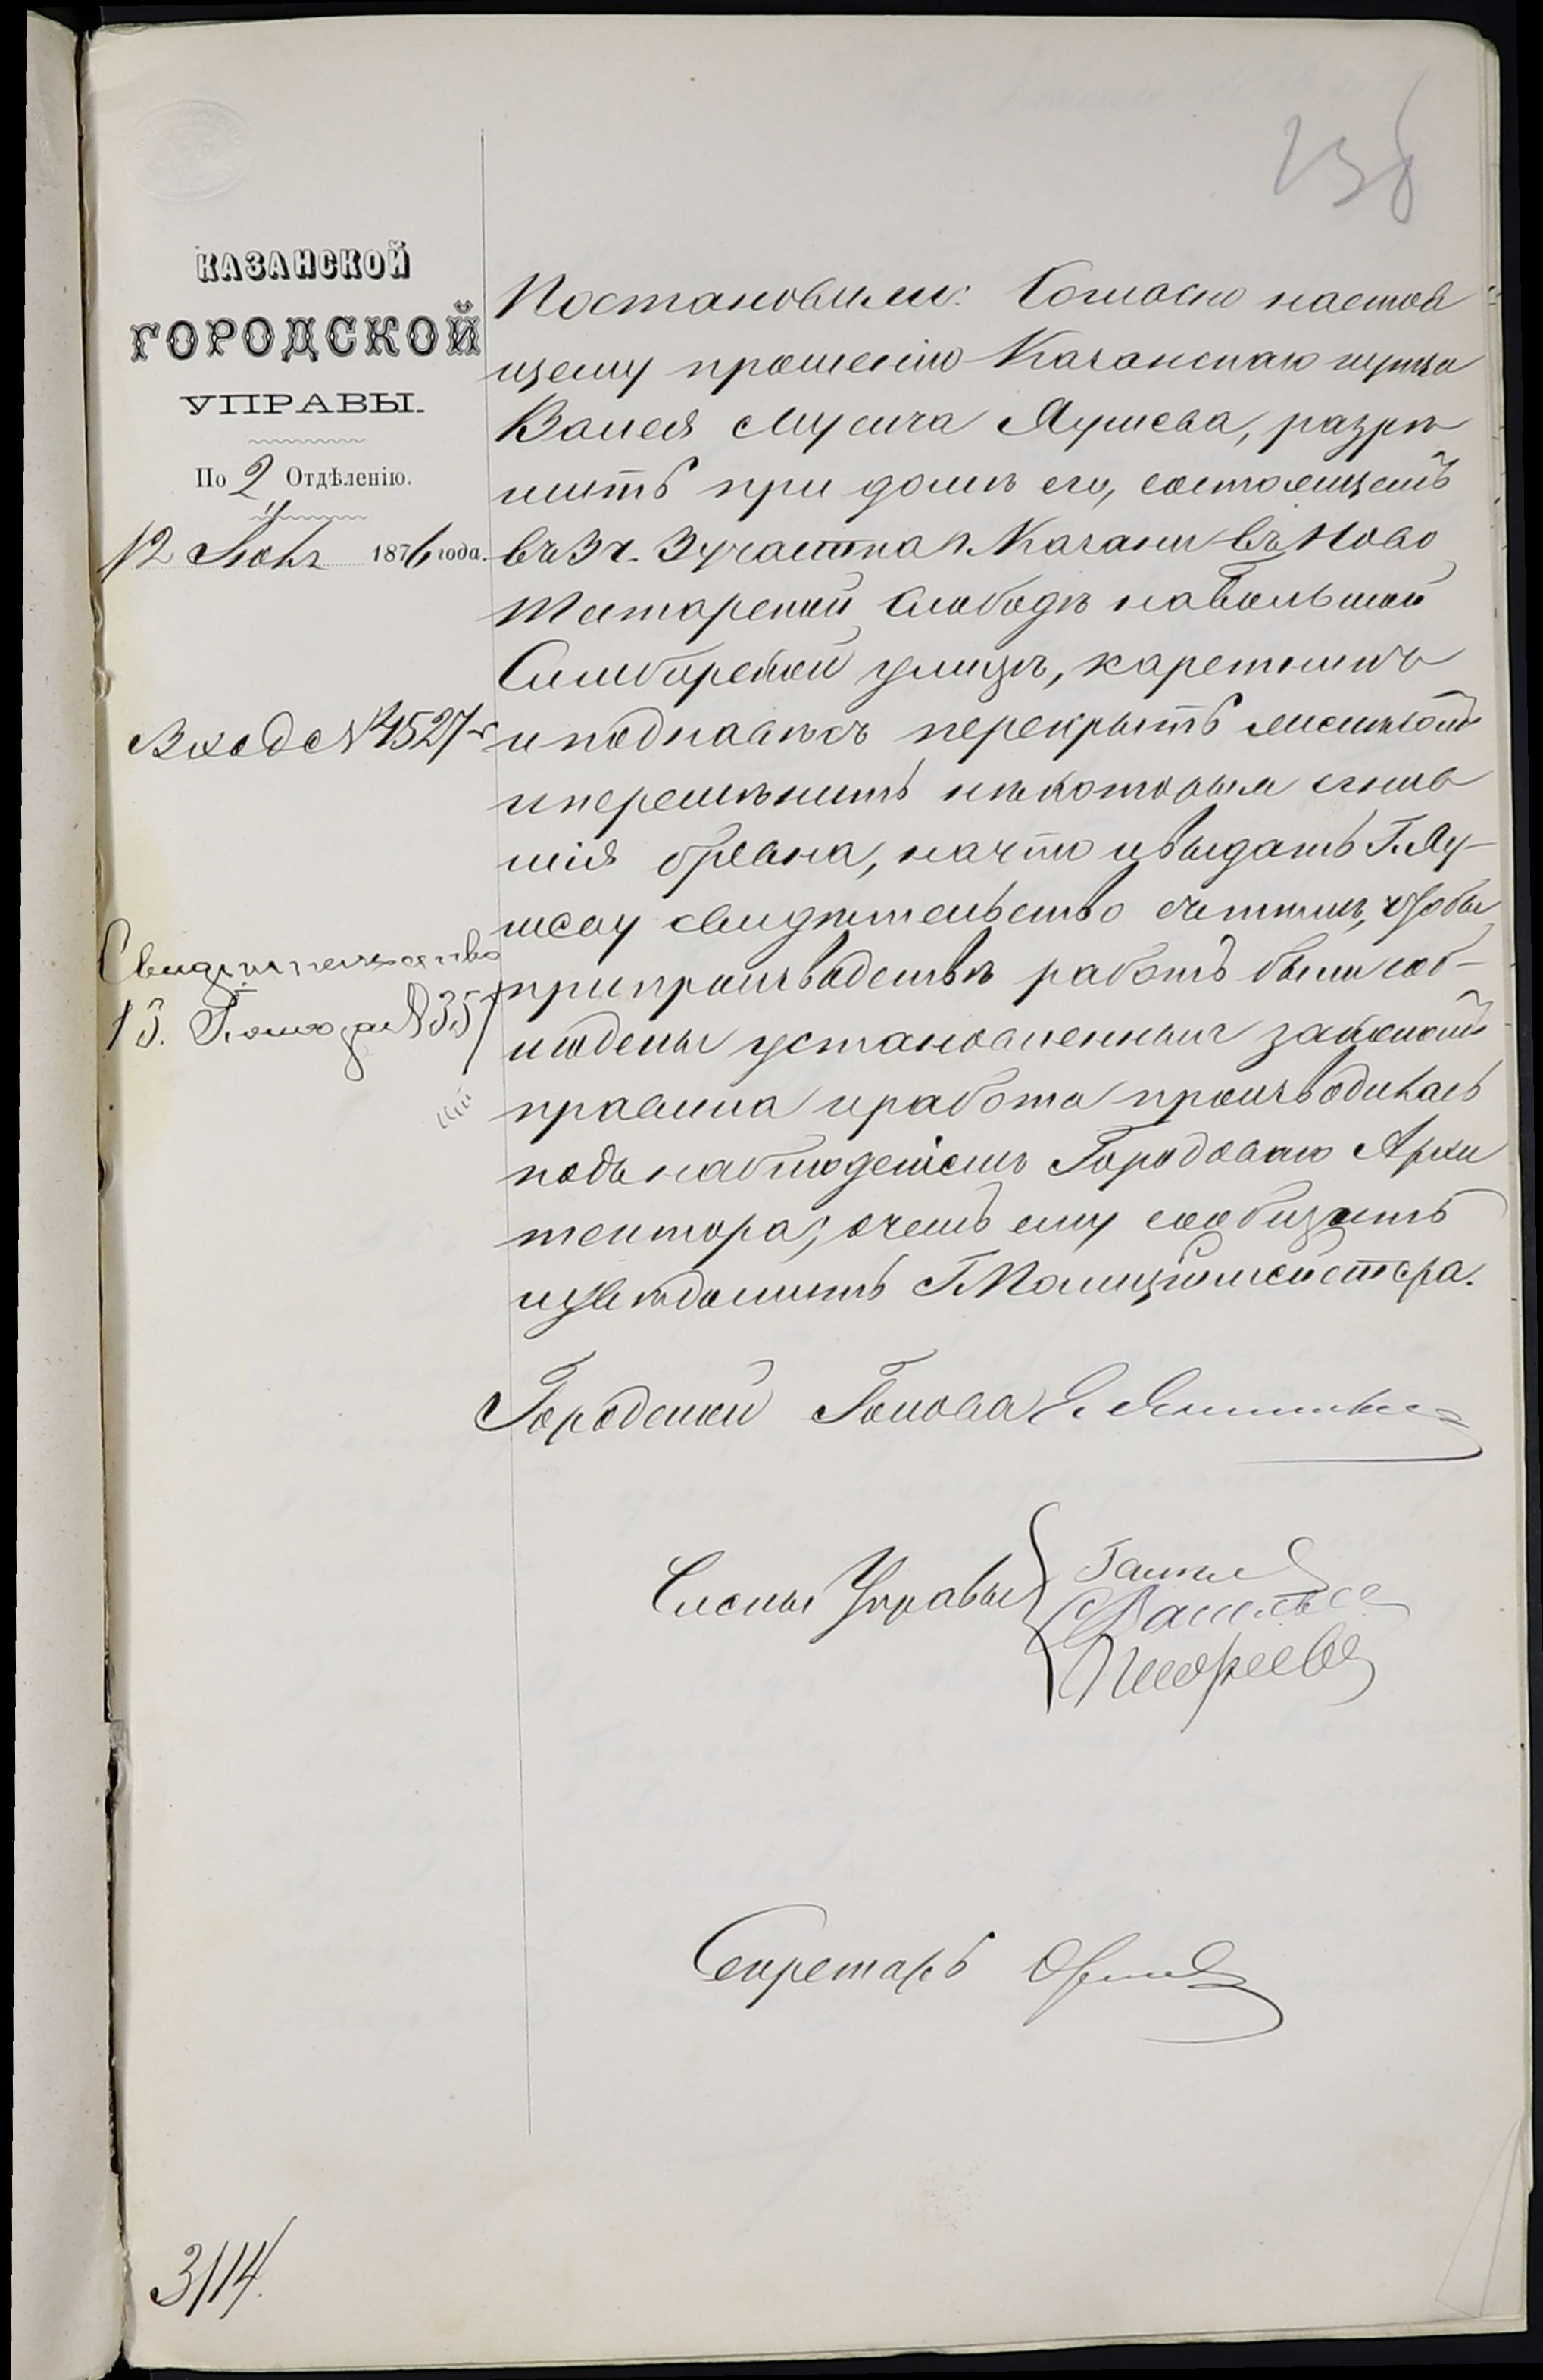 238
КАЗАНСКОЙ
ГОРОДСКОЙ
УПРАВЫ.
По 2 Отдѣленію.
12 Іюня 1876 года.
Входъ № 4527
Свидѣтельство
13. Іюня за № 357
Постановили: Согласно настоя
щему прошенію Казанскаго купца
Валея Мусича Яушева, разрѣ
шить при домѣ его, состоящемъ
въ 3 ч. 3 участка г. Казани въ Ново
Татарской слободѣ на Большой
Симбирской улицѣ, каретникъ
и поднавѣсъ перекрыть листомъ
и перемѣнить нѣкоторыя сгнив
шія бревна, на что и выдать Г. Яу-
шеву свидѣтельство съ тѣмъ, чтобы
при производствѣ работъ были соб-
людены установленныя закономъ
правила и работа производилась
подъ наблюденіемъ Городоваго Архи
тектора; о чемъ ему сообщить
и увѣдомить Г. Полиціймейстера.
Городской Голова
Члены Управы
Секретарь
3114.